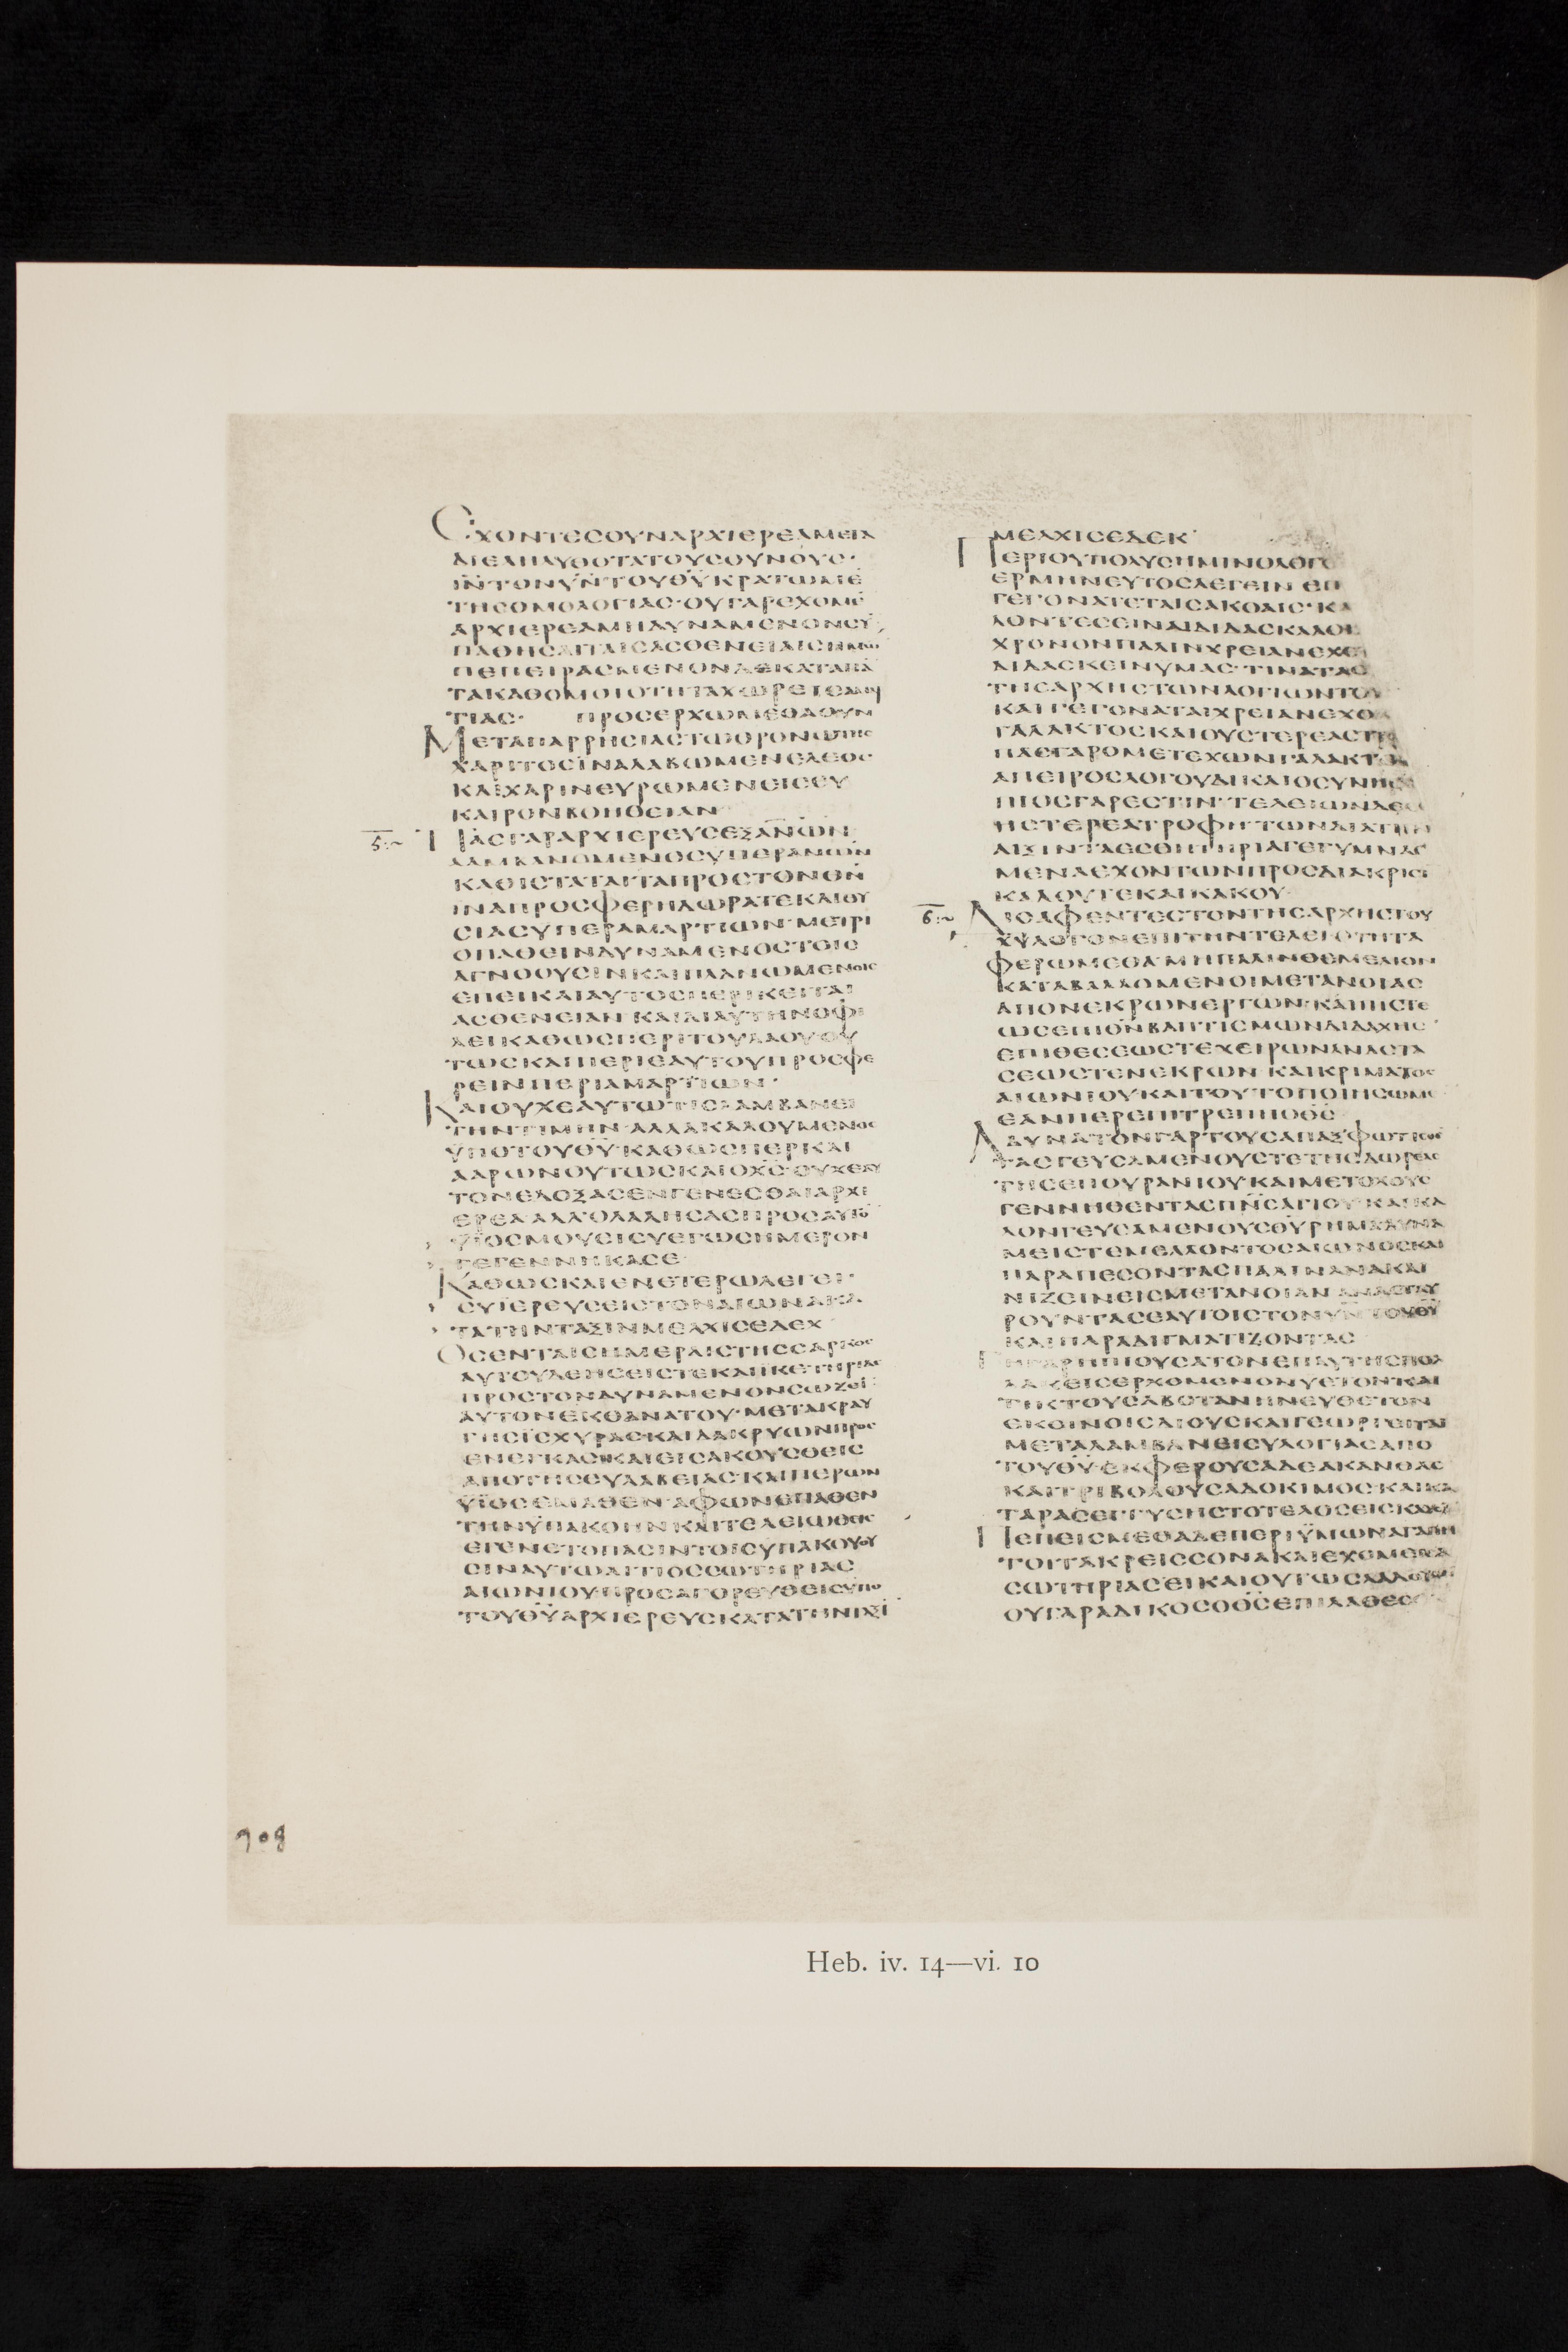 ΕΧΟΝΤΕCΟΥΝΑΡΧΙΕΡΕΑΜΕΓΑ
ΔΙΕΛΗΛΥΘΟΤΑΤΟΥCΟΥΝΟΥC·
ΙΝΤΟΝΥΝΤΟΥΘΥΚΡΑΤΩΜΕ
ΤΗCΟΜΟΛΟΓΙΑC·ΟΥΓΑΡΕΧΟΜΕ
ΑΡΧΙΕΡΕΑΜΗΔΥΝΑΜΕΝΟΝCΥ
ΠΑΘΗCΑΙΤΑΙCΑCΘΕΝΕΙΑΙCΗΜΩ
ΠΕΠΕΙΡΑCΜΕΝΟΝΔΕΚΑΤΑΠΑ
ΤΑΚΑΘΟΜΟΙΟΤΗΤΑΧΩΡΕΙCΑΜΑΡ
ΤΙΑC· ΠΡΟCΕΡΧΩΜΕΘΑΟΥΝ
ΜΕΤΑΠΑΡΡΗCΙΑCΤΩΘΡΟΝΩΤΗC
ΧΑΡΙΤΟCΙΝΑΛΑΒΩΜΕΝΕΛΕΟC
ΚΑΙΧΑΡΙΝΕΥΡΩΜΕΝΕΙCΕΥ
ΚΑΙΡΟΝΒΟΗΘΕΙΑΝ
ΠΑCΓΑΡΑΡΧΙΕΡΕΥCΕΞΑΝΩΝ
ΛΑΜΒΑΝΟΜΕΝΟCΥΠΕΡΑΝΩΝ
ΚΑΘΙCΤΑΤΑΙΤΑΠΡΟCΤΟΝΘΝ
ΙΝΑΠΡΟCΦΕΡΗΔΩΡΑΤΕΚΑΙΘΥ
CΙΑCΥΠΕΡΑΜΑΡΤΙΩΝ·ΜΕΤΡΙ
ΟΠΑΘΕΙΝΔΥΝΑΜΕΝΟCΤΟΙC
ΑΓΝΟΟΥCΙΝΚΑΙΠΛΑΝΩΜΕΝΟΙC
ΕΠΕΙΚΑΙΑΥΤΟCΠΕΡΙΚΕΙΤΑΙ
ΑCΘΕΝΕΙΑΝ ΚΑΙΔΙΑΥΤΗΝΟΦΙ
ΛΕΙΚΑΘΩCΠΕΡΙΤΟΥΛΑΟΥΟΥ
ΤΩCΚΑΙΠΕΡΙΕΑΥΤΟΥΠΡΟCΦΕ
ΡΕΙΝΠΕΡΙΑΜΑΡΤΙΩΝ·
ΚΑΙΟΥΧΕΑΥΤΩΤΙCΛΑΜΒΑΝΕΙ
ΤΗΝΤΙΜΗΝ·ΑΛΛΑΚΑΛΟΥΜΕΝΟC
ΫΠΟΤΟΥΘΥ·ΚΑΘΩCΠΕΡΚΑΙ
ΑΑΡΩΝΟΥΤΩCΚΑΙΟΧC·ΟΥΧΕΑΥ
ΤΟΝΕΔΟΞΑCΕΝΓΕΝΕCΘΑΙΑΡΧΙ
ΕΡΕΑ·ΑΛΛΟΛΑΛΗCΑCΠΡΟCΑΥΤΟ
ΫΙΟCΜΟΥΕΙCΥΕΓΩCΗΜΕΡΟΝ
ΓΕΓΕΝΝΗΚΑCΕ
ΚΑΘΩCΚΑΙΕΝΕΤΕΡΩΛΕΓΕΙ·
CΥΪΕΡΕΥCΕΙCΤΟΝΑΙΩΝΑΚΑ
ΤΑΤΗΝΤΑΞΙΝΜΕΛΧΙCΕΔΕΚ
ΟCΕΝΤΑΙCΗΜΕΡΑΙCΤΗCCΑΡΚΟC
ΑΥΤΟΥΔΕΗCΕΙCΤΕΚΑΙΪΚΕΤΗΡΙΑC
ΠΡΟCΤΟΝΔΥΝΑΜΕΝΟΝCΩΖΕΙ
ΑΥΤΟΝΕΚΘΑΝΑΤΟΥ·ΜΕΤΑΚΡΑΥ
ΓΗCΪCΧΥΡΑCΚΑΙΔΑΚΡΥΩΝΠΡΟC
ΕΝΕΓΚΑCΚΑΙΕΙCΑΚΟΥCΘΕΙC
ΑΠΟΤΗCΕΥΛΑΒΕΙΑC·ΚΑΙΠΕΡΩΝ
ΫΙΟCΕΜΑΘΕΝΑΦΩΝΕΠΑΘΕΝ
ΤΗΝΫΠΑΚΟΗΝΚΑΙΤΕΛΕΙΩΘΕΙC
ΕΓΕΝΕΤΟΠΑCΙΝΤΟΙCΥΠΑΚΟΥΟΥ
CΙΝΑΥΤΩΑΙΤΙΟCCΩΤΗΡΙΑC
ΑΙΩΝΙΟΥΠΡΟCΑΓΟΡΕΥΘΕΙCΥΠΟ
ΤΟΥΘΥΑΡΧΙΕΡΕΥCΚΑΤΑΤΗΝΤΑΞΙ
ΜΕΛΧΙCΕΔΕΚ·
ΠΕΡΙΟΥΠΟΛΥCΗΜΙΝΟΛΟΓΟ
ΕΡΜΗΝΕΥΤΟCΛΕΓΕΙΝ ΕΠ
ΓΕΓΟΝΑΤΕΤΑΙCΑΚΟΑΙC·ΚΑ
ΛΟΝΤΕCΕΙΝΑΙΔΙΔΑCΚΑΛΟΙ
ΧΡΟΝΟΝΠΑΛΙΝΧΡΕΙΑΝΕΧΕ
ΔΙΔΑCΚΕΙΝΥΜΑC·ΤΙΝΑΤΑC
ΤΗCΑΡΧΗCΤΩΝΛΟΓΙΩΝΤΟΥ
ΚΑΙΓΕΓΟΝΑΤΑΙΧΡΕΙΑΝΕΧΟ
ΓΑΛΑΚΤΟCΚΑΙΟΥCΤΕΡΕΑCΤΡ
ΠΑCΓΑΡΟΜΕΤΕΧΩΝΓΑΛΑΚΤ
ΑΠΕΙΡΟCΛΟΓΟΥΔΙΚΑΙΟCΥΝΗC
ΠΙΟCΓΑΡΕCΤΙΝ·ΤΕΛΕΙΩΝΔΕ
ΗCΤΕΡΕΑΤΡΟΦΗ·ΤΩΝΔΙΑΤΗΝ
ΑΙCΘΗΤΗΡΙΑΓΕΓΥΜΝΑC
ΜΕΝΑΕΧΟΝΤΩΝΠΡΟCΔΙΑΚΡΙCΙ
ΚΑΛΟΥΤΕΚΑΙΚΑΚΟΥ
ΔΙΟΑΦΕΝΤΕCΤΟΝΤΗCΑΡΧΗCΤΟΥ
ΧΥΛΟΓΟΝΕΠΙΤΗΝΤΕΛΕΙΟΤΗΤΑ
ΦΕΡΩΜΕΘΑ·ΜΗΠΑΛΙΝΘΕΜΕΛΙΟΝ
ΚΑΤΑΒΑΛΛΟΜΕΝΟΙΜΕΤΑΝΟΙΑC
ΑΠΟΝΕΚΡΩΝΕΡΓΩΝ·ΚΑΙΠΙCΤΕ
ΩCΕΠΙΘΝΒΑΠΤΙCΜΩΝΔΙΔΑΧΗC
ΕΠΙΘΕCΕΩCΤΕΧΕΙΡΩΝΑΝΑCΤΑ
CΕΩCΤΕΝΕΚΡΩΝ·ΚΑΙΚΡΙΜΑΤΟC
ΑΙΩΝΙΟΥΚΑΙΤΟΥΤΟΠΟΙΗCΩΜΕ
ΕΑΝΠΕΡΕΠΙΤΡΕΠΗΟΘC
ΑΔΥΝΑΤΟΝΓΑΡΤΟΥCΑΠΑΞΦΩΤΙCΘΕ
ΤΑCΓΕΥCΑΜΕΝΟΥCΤΕΤΗCΔΩΡΕΑC
ΤΗCΕΠΟΥΡΑΝΙΟΥΚΑΙΜΕΤΟΧΟΥC
ΓΕΝΝΗΘΕΝΤΑCΠΝCΑΓΙΟΥ·ΚΑΙΚΑ
ΛΟΝΓΕΥCΑΜΕΝΟΥCΘΥΡΗΜΑΔΥΝΑ
ΜΕΙCΤΕΜΕΛΛΟΝΤΟCΑΙΩΝΟCΚΑΙ
ΠΑΡΑΠΕCΟΝΤΑCΠΑΛΙΝΑΝΑΚΑΙ
ΝΙΖΕΙΝΕΙCΜΕΤΑΝΟΙΑΝ ΑΝΑCΤΑΥ
ΡΟΥΝΤΑCΕΑΥΤΟΙCΤΟΝΥΝΤΟΥΘΥ
ΚΑΙΠΑΡΑΔΙΓΜΑΤΙΖΟΝΤΑC
ΓΗΓΑΡΗΠΙΟΥCΑΤΟΝΕΠΑΥΤΗCΠΟΛ
ΛΑΚΕΙCΕΡΧΟΜΕΝΟΝΥΕΤΟΝΚΑΙ
ΤΙΚΤΟΥCΑΒΟΤΑΝΗΝΕΥΘΕΤΟΝ
ΕΚΟΙΝΟΙCΔΙΟΥCΚΑΙΓΕΩΡΓΕΙΤΑΙ
ΜΕΤΑΛΑΜΒΑΝΕΙΕΥΛΟΓΙΑCΑΠΟ
ΤΟΥΘΥ·ΕΚΦΕΡΟΥCΑΔΕΑΚΑΝΘΑC
ΚΑΙΤΡΙΒΟΛΟΥCΑΔΟΚΙΜΟCΚΑΙΚΑ
ΤΑΡΑCΕΓΓΥCΗCΤΟΤΕΛΟCΕΙCΚΑΥCΙ
ΠΕΠΕΙCΜΕΘΑΔΕΠΕΡΙΫΜΩΝΑΓΑΠΗ
ΤΟΙΤΑΚΡΕΙCCΟΝΑΚΑΙΕΧΟΜΕΝΑ
CΩΤΗΡΙΑCΕΙΚΑΙΟΥΤΩCΛΑΛΟΥΜΕ
ΟΥΓΑΡΑΔΙΚΟCΟΘCΕΠΙΛΑΘΕC
908
Heb. iv. 14—vi. 10